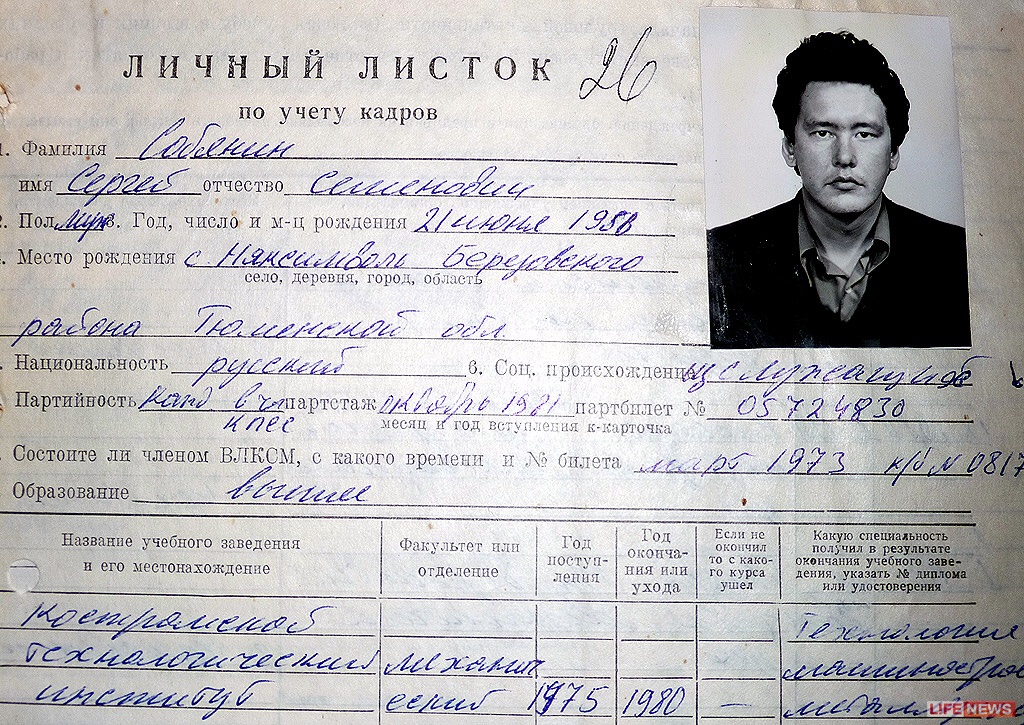 ЛИЧНЫЙ ЛИСТОК 26
по учету кадров
1. Фамилия Собянин
имя Сергей отчество Семенович
2. Пол муж 3. Год, число и м-ц рождения 21 июня 1958
. Место рождения с Няксимволь Березовского
село, деревня, город, область
района Тюменской обл
. Национальность русский 6. Соц. происхождение служащие
Партийность канд в чл партстаж октябрь 1981 партбилет № 05724830
КПСС месяц и год вступления к-карточка
Состоите ли членом ВЛКСМ, с какого времени и № билета март 1973 к/б N 0817
Образование высшее
Название учебного заведения и его местонахождение
Факультет или отделение
Год поступ-ления
Год оконча-ния или ухода
Если не окончил то с како-го курса ушел
Какую специальность получил в результате окончания учебного заве-дения, указать № диплома или удостоверения
Костромской Технология
технологический механич машинострое
институт еский 1975 1980 —
LIFE NEWS